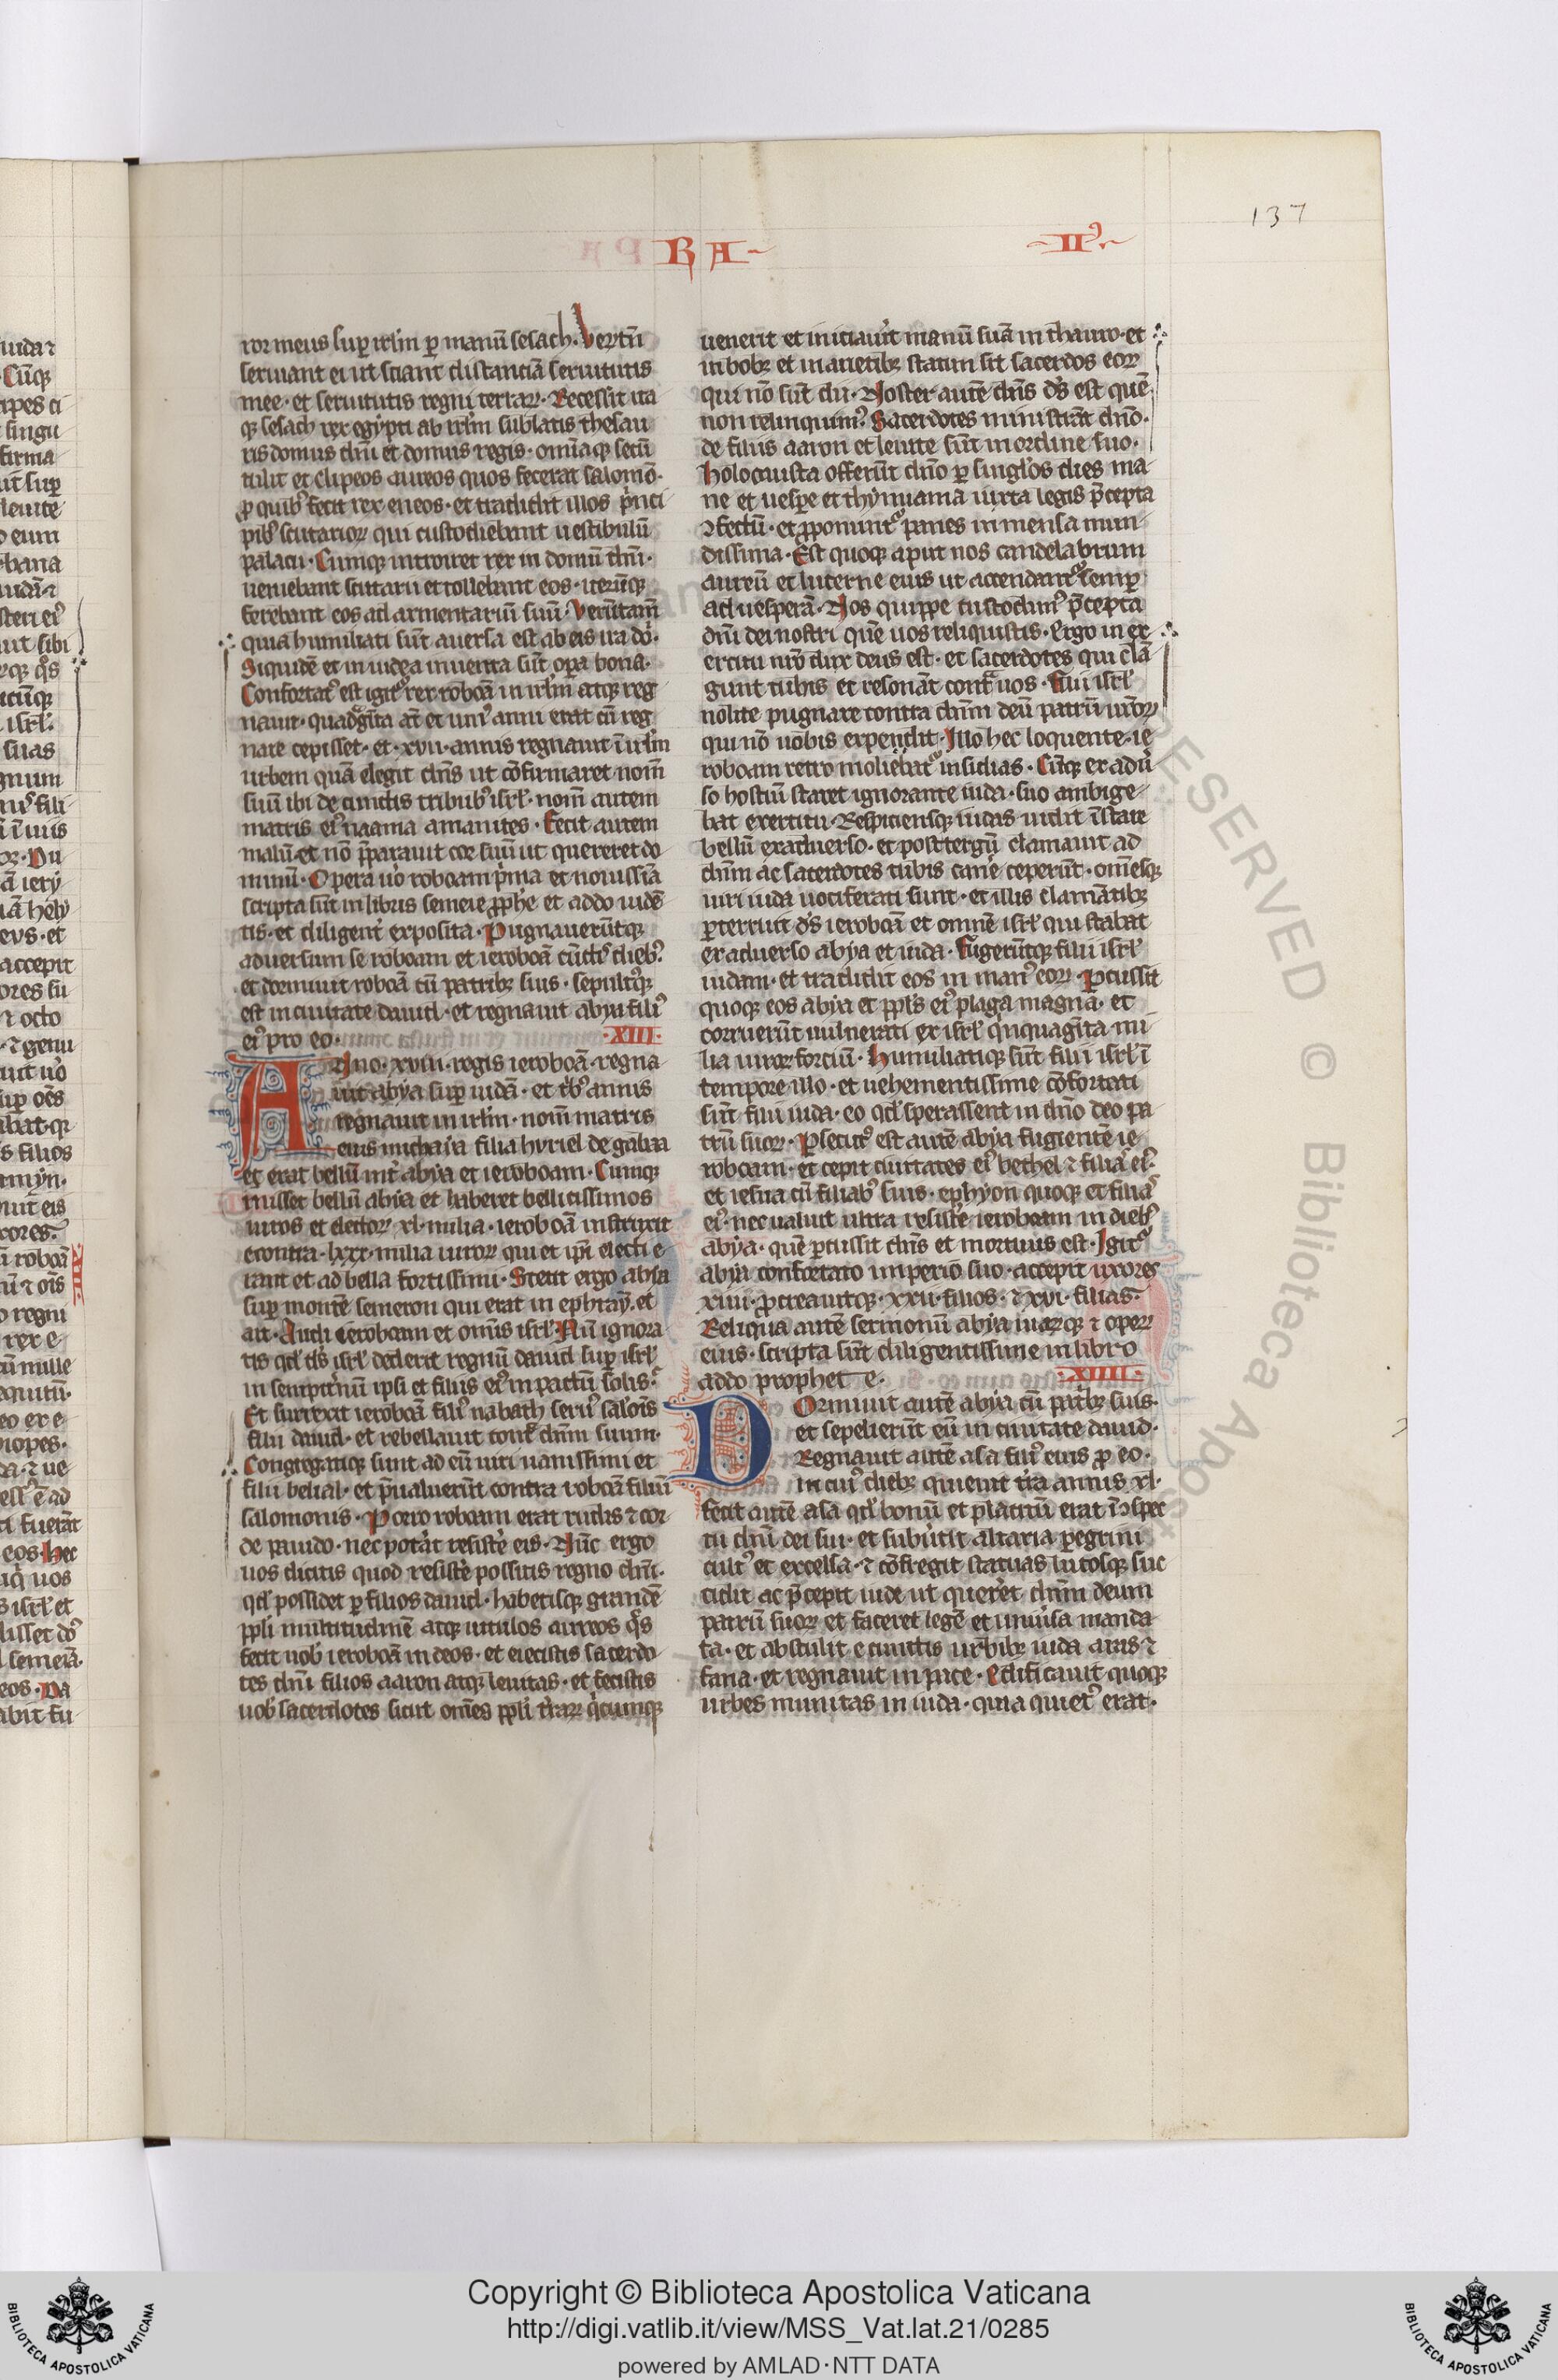 137
RA
II
ror meus sup irl̄m p manū sesach. Vertū
seruiant ei ut sciant distanciā seruitutis
mee· et seruitutis regni terrarꝝ. Recessit ita
qꝫ sesach rex egypti ab irl̄m sublatis thesau
ris domus dn̄i et domus regis· omīaqꝫ secū
tulit et clipeos aureos quos fecerat salomō·
ꝓ quibꝰ fecit rex eneos· et tradidit illos p̄nci
pibꝰ scutariorꝝ qui custodiebant uestibulū
palacii· Cumqꝫ introiret rex in domū dn̄i·
ueniebant scutarii et tollebant eos· iterūqꝫ
ferebant eos ad armentariū suū· Verūtam̄
quia humiliati sūt auersa est ab eis ira do᷑·
Siquidē et in iudea inuenta sūt opa bona·
Confortatꝰ est igit᷑ rex roboā in irl̄m atqꝫ reg
nauit· quadgīta at̄ et unꝰ anni erat cū reg
nare cepisset· et· xvii· annis regnauit ī irl̄m
urbem quā elegit dn̄s ut cōfirmaret nom̄
suū ibi de cunctis tribubꝰ isrl̄· nom̄ autem
matris eiꝰ naama amanites· Fecit autem
malū· et nō p̄parauit cor suū ut quereret do
minū· Opera uo roboam p̄ma et nouissīa
scripta sūt in libris semeie ꝓphe et addo uidē
tis· et diligent᷑ exposita· Pugnauerūtqꝫ
aduersum se roboam et ieroboā cūctꝭ diebꝰ·
et dormiuit roboā cū patribꝫ suis· sepultꝰqꝫ
est in ciuitate dauid· et regnauit abya filiꝰ
eiꝰ pro eo· XIII·
Anno· xviii· regis ieroboā· regna
uit abya sup iudā· et t͛bꝰ annis
regnauit in irl̄m· nom̄ matris
eius michaia filia huriel de gabaa
et erat bellū int͛ abya et ieroboam· Cumqꝫ
inisset bellū abya et haberet bellicissimos
uiros et electorꝝ· xl· milia· ieroboā instruxit
econtra· lxxx· milia uirorꝝ qui et ip̄i electi e
rant et ad bella fortissimi· Stetit ergo abya
sup montē semeron qui erat in ephraȳ· et
ait· Audi ieroboam et omīs isrl̄· Nū ignora
tis qd̄ dn̄s isrl̄ dederit regnū dauid sup isrl̄
in sempit͛nū ipsi et filiis eiꝰ in pactū solis·
Et surrexit ieroboā filiꝰ nabath seruꝰ saloīs
filii dauid· et rebellauit cont᷑ dn̄m suum·
Congregatiqꝫ sunt ad eū uiri uanissimi et
filii belial· et p̄ualuerūt contra roboā filiū
salomonis· Porro roboam erat rudis ⁊ cor
de pauido· nec pot͛at resist͛e eis· Nūc ergo
uos dicitis quod resist͛e possitis regno dn̄i·
qd̄ possidet p filios dauid· habetisqꝫ grandē
ppl̄i multitudinē atqꝫ uitulos aureos qͦs
fecit uobꝭ ieroboā in deos· et eiecistis sacerdo
tes dn̄i filios aaron atqꝫ leuitas· et fecistis
uobꝭ sacerdotes sicut om̄es ppl̄i t͛rarꝝ qͥcumqꝫ
uenerit et iniciau͛it manū suā in thauro· et
in bobꝫ et in arietibꝫ statim fit sacerdos eorꝝ
qui nō sūt dii· Noster autē dn̄s dꝰs est quē
non relinquimꝰ· Sacerdotes ministrāt dn̄o·
de filiis aaron et leuite sūt in ordine suo·
Holocausta offerūt dn̄o p singlos dies ma
ne et uespe et thymiama iuxta legis p̄cepta
ꝯfectū· et ꝓponunt᷑ panes in mensa mun
dissima· Est quoqꝫ aput nos candelabrum
aureū et lucerne eius ut accendant᷑ semp
ad uesperā· Nos quippe custodimꝰ p̄cepta
dn̄i dei nostri quē uos reliquistis· Ergo in ex
ercitu nr̄o dux deus est· et sacerdotes qui clā
gunt tubis et resonāt cont᷑ uos· Filii isrl̄
nolite pugnare contra dn̄m deū patrū ur̄orꝝ
qui nō uobis expendit· Illo hec loquente· ie
roboam retro moliebat᷑ insidias· Cūqꝫ ex adu͛
so hostiū staret ignorante iuda· suo ambige
bat exercitu· Respiciensqꝫ iudas uidit īstare
bellū ex aduerso· et post tergū clamauit ad
dn̄m ac sacerdotes tubis can͛e ceperūt· om̄esqꝫ
uiri iuda uociferati sunt· et illis clamātibꝫ
pterruit dꝰs ieroboā et omnē isrl̄ qui stabat
ex aduerso abya et iuda· Fugerūtqꝫ filii isrl̄
iudam· et tradidit eos in manꝰ eorꝝ· Pcussit
quoqꝫ eos abya et ppl̄s eiꝰ plaga magna· et
corruerūt uulnerati ex isrl̄ qͥnquagīta mi
lia uirorꝝ forciū· Humiliatiqꝫ sūt filii isrl̄ ī
tempore illo· et uehementissime cōfortati
sūt filii iuda· eo qd̄ sperassent in dn̄o deo pa
trū suorꝝ· Psecutꝰ est autē abya fugientē ie
roboam· et cepit ciuitates eiꝰ bethel ⁊ filias eiꝰ·
et iesna cū filiabꝰ suis· ephyon quoqꝫ et filias
eiꝰ· nec ualuit ultra resist͛e ieroboam in diebꝰ
abya· quē pcussit dn̄s et mortuus est· Igit᷑
abya confortato imperio suo· accepit uxores
xiiii· ꝓcreauitqꝫ· xxii· filios· ⁊ xvi· filias·
Reliqua autē sermonū abya uiarꝝqꝫ ⁊ operꝝ
eius· scripta sūt diligentissime in libro
addo prophete· XIIII·
Dormiuit autē abya cū patribꝫ suis·
et sepelierūt eū in ciuitate dauid·
Regnauit autē asa filiꝰ eius ꝓ eo·
in cuiꝰ diebꝫ quieuit t͛ra annis xl·
fecit autē asa qd̄ bonū et placitū erat ī ꝯspec
tu dn̄i dei sui· et subu͛tit altaria peregrini
cultꝰ et excelsa· ⁊ cōfregit statuas lucosqꝫ suc
cidit ac p̄cepit iude ut quer͛et dn̄m deum
patrū suorꝝ et faceret legē et uniu͛sa manda
ta· et abstulit e cunctis urbibꝫ iuda aras ⁊
fana· et regnauit in pace· Edificauit quoqꝫ
urbes munitas in iuda· quia quietꝰ erat·
RESERVED © Biblioteca Apost
Copyright © Biblioteca Apostolica Vaticana
http://digi.vatlib.it/view/MSS_Vat.lat.21/0285
powered by AMLAD·NTT DATA
BIBLIOTECA APOSTOLICA VATICANA
BIBLIOTECA APOSTOLICA VATICANA